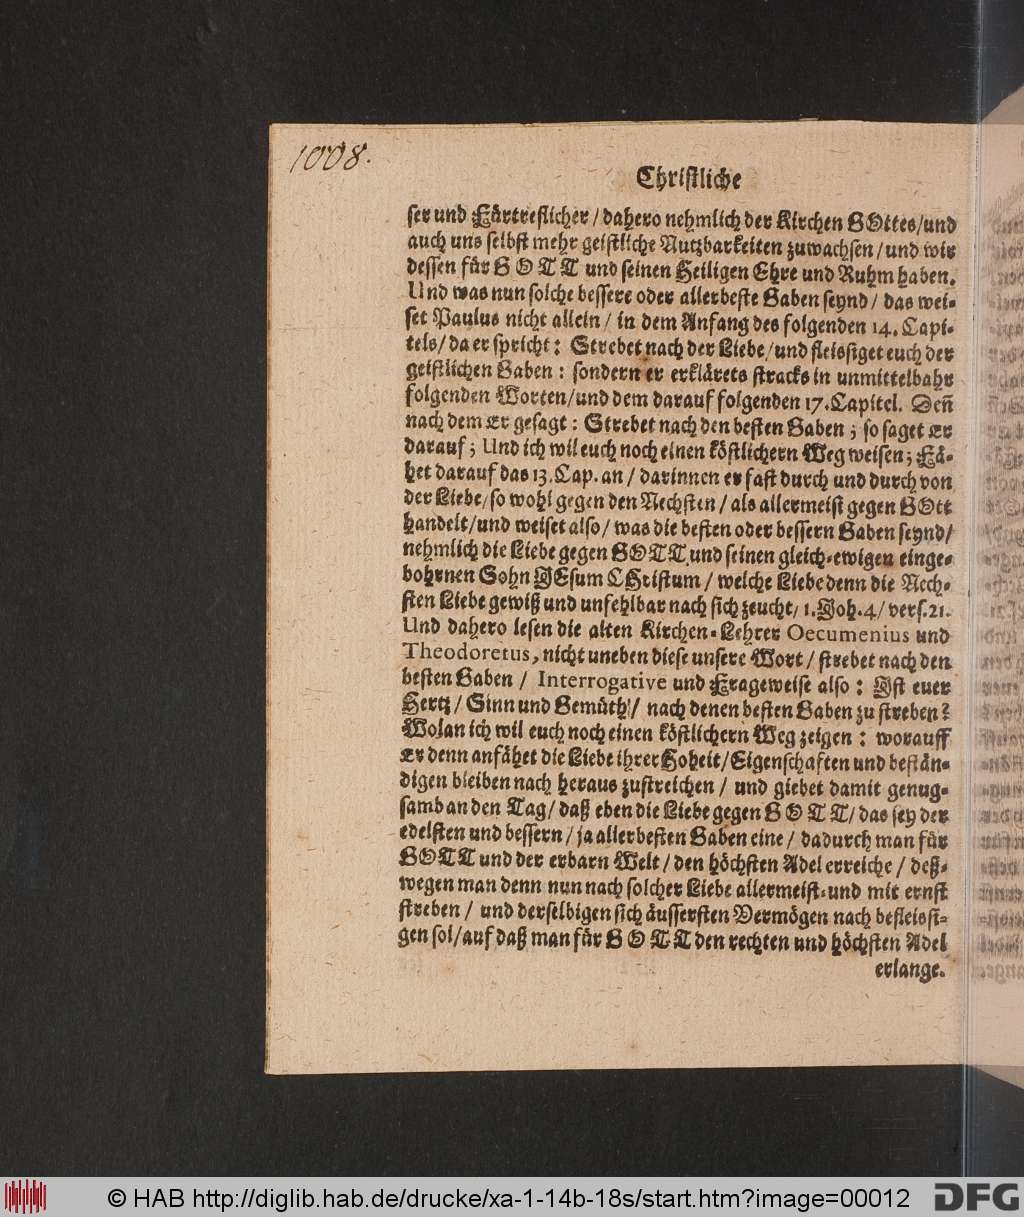 1008.
Christliche
ser und Fürtreflicher / dahero nehmlich der Kirchen GOttes/und
auch uns selbst mehr geistliche Nutzbarkeiten zuwachsen / und wir
dessen für GOTT und seinen Heiligen Ehre und Ruhm haben.
Und was nun solche bessere oder allerbeste Gaben seynd / das wei-
set Paulus nicht allein / in dem Anfang des folgenden 14. Capi-
tels/ da er spricht: Strebet nach der Liebe/und fleissiget euch der
geistlichen Gaben: sondern er erklärets stracks in unmittelbahr
folgenden Worten/und dem darauf folgenden 17. Capitel. Deñ
nach dem Er gesagt: Strebet nach den besten Gaben; so saget Er
darauf; Und ich wil euch noch einen köstlichern Weg weisen; Fä-
het darauf das 13. Cap. an / darinnen er fast durch und durch von
der Liebe/ so wohl gegen den Nechsten / als allermeist gegen GOtt
handelt/und weiset also/ was die besten oder bessern Gaben seynd/
nehmlich die Liebe gegen GOTT und seinen gleich-ewigen einge-
bohrnen Sohn JEsum CHristum / welche Liebe denn die Nech-
sten Liebe gewiß und unfehlbar nach sich zeucht/ 1. Joh. 4/ vers. 21.
Und dahero lesen die alten Kirchen-Lehrer Oecumenius und
Theodoretus, nicht uneben diese unsere Wort / strebet nach den
besten Gaben / Interrogative und Frageweise also: Jst euer
Hertz / Sinn und Gemüth / nach denen besten Gaben zu streben?
Wolan ich wil euch noch einen köstlichern Weg zeigen: worauff
Er denn anfähet die Liebe ihrer Hoheit/Eigenschaften und bestän-
digen bleiben nach heraus zustreichen / und giebet damit genug-
samb an den Tag/ daß eben die Liebe gegen GOTT/ das sey der
edelsten und bessern / ja allerbesten Gaben eine / dadurch man für
GOTT und der erbarn Welt / den höchsten Adel erreiche / deß-
wegen man denn nun nach solcher Liebe allermeist-und mit ernst
streben / und derselbigen sich äussersten Vermögen nach befleissi-
gen sol/auf daß man für GOTT den rechten und höchsten Adel
erlange.
© HAB http://diglib.hab.de/drucke/xa-1-14b-18s/start.htm?image=00012
DFG